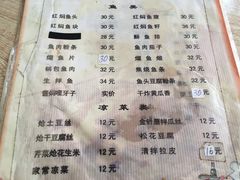 鱼类
红焖鱼头 30元 红焖鱼腹 30元
红焖鱼块 30元 红焖鱼籽 36元
32元 酥鱼排 30元
鱼肉粉条 30元 鱼肉茄子 30元
熘鱼片 30元 熘鱼焗 30元
锅包鱼肉 32元 焦烧鱼条 30元
生拌鱼 34元 鱼头豆腐粉条 32元
酱焖嘎牙子 实价 干炸黄瓜香 30元
凉菜类
炝土豆丝 12元 金针菇拌瓜丝 12元
炝干豆腐丝 12元 松花豆腐 12元
芹菜炝花生米 12元 清拌拉皮 16元
家常凉菜 12元